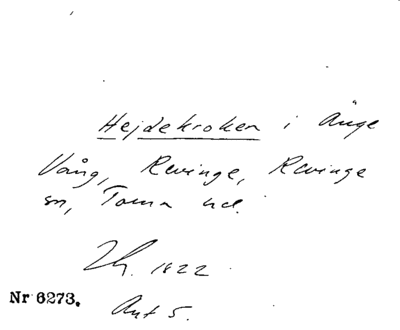 Hejdekroken i Änge
Vång, Revinge, Revinge
sn, Torna hd.
Lh. 1822
Nr 6273.
Ant 5.